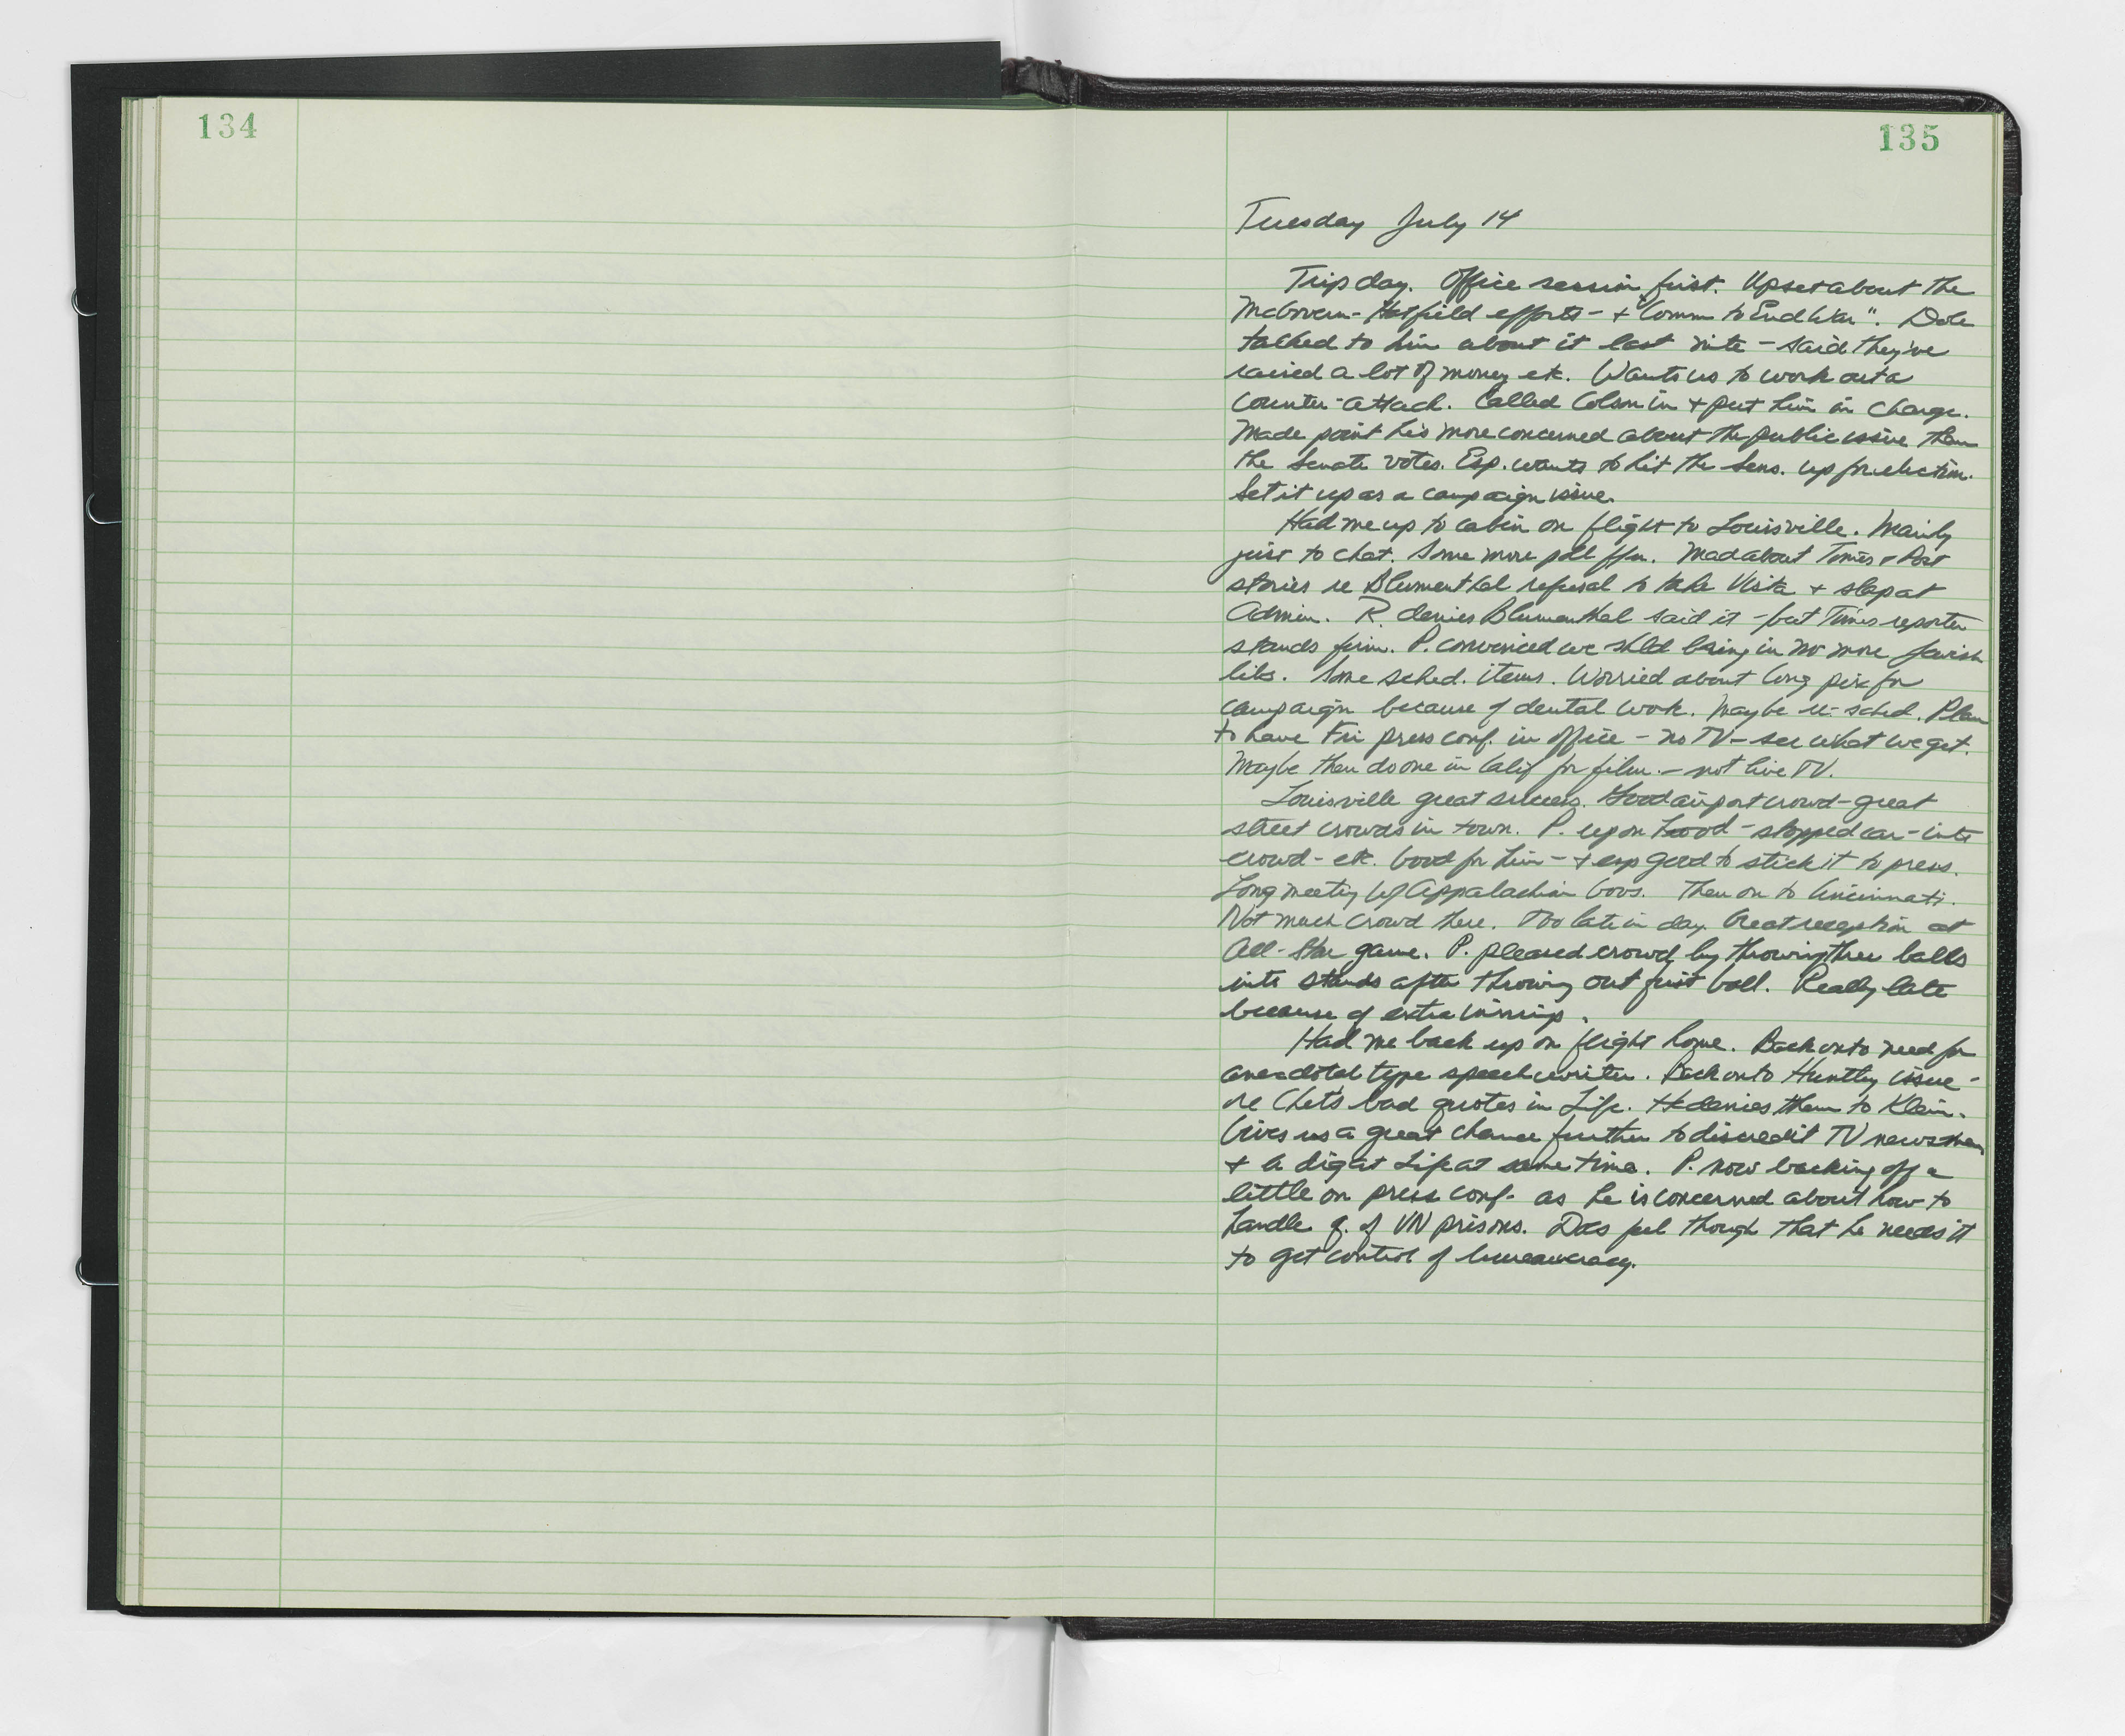 134
135
Tuesday July 14
Trip day. Office session first. Upset about the
McGovern-Hatfield efforts - + "Comm to End War". Dole
talked to him about it last nite - said they've
raised a lot of money etc. Wants us to work out a
counter-attack. Called Colson in + put him in charge.
Made point he's more concerned about the public issue than
the Senate votes. Esp. wants to hit the Sens. up for election.
Set it up as a campaign issue.
Had me up to cabin on flight to Louisville. Mainly
just to chat. Some more poll. Mad about Times + Post
stories re Blumenthal refusal to take Vista + slap at
Admin. R. denies Blumenthal said it - but Times reporter
stands firm. P. convinced we shld bring in no more Jewish
libs. Some sched. items. Worried about Cong pix for
campaign because of dental work. Maybe re-sched. Plan
to have Fri press conf. in office - no TV - see what we get.
Maybe then do one in Calif for film - not live TV.
Louisville great success. Good airport crowd - great
street crowds in town. P. up on hood - stopped car - into
crowd - etc. Good for him - + esp good to stick it to press.
Long meeting w/ Appalachian Govs. Then on to Cincinnati.
Not much crowd there. Too late in day. Great reception at
All-Star game. P. pleased crowd by throwing three balls
into stands after throwing out first ball. Really late
because of extra innings.
Had me back up on flight home. Back onto need for
anecdotal type speechwriter. Back onto Huntley issue -
re Chet's bad quotes in Life. He denies them to Klein.
Gives us a great chance further to discredit TV newsmen
+ a dig at Life at same time. P. now backing off a
little on press conf. as he is concerned about how to
handle q. of VN prisons. Does feel though that he needs it
to get control of bureaucracy.